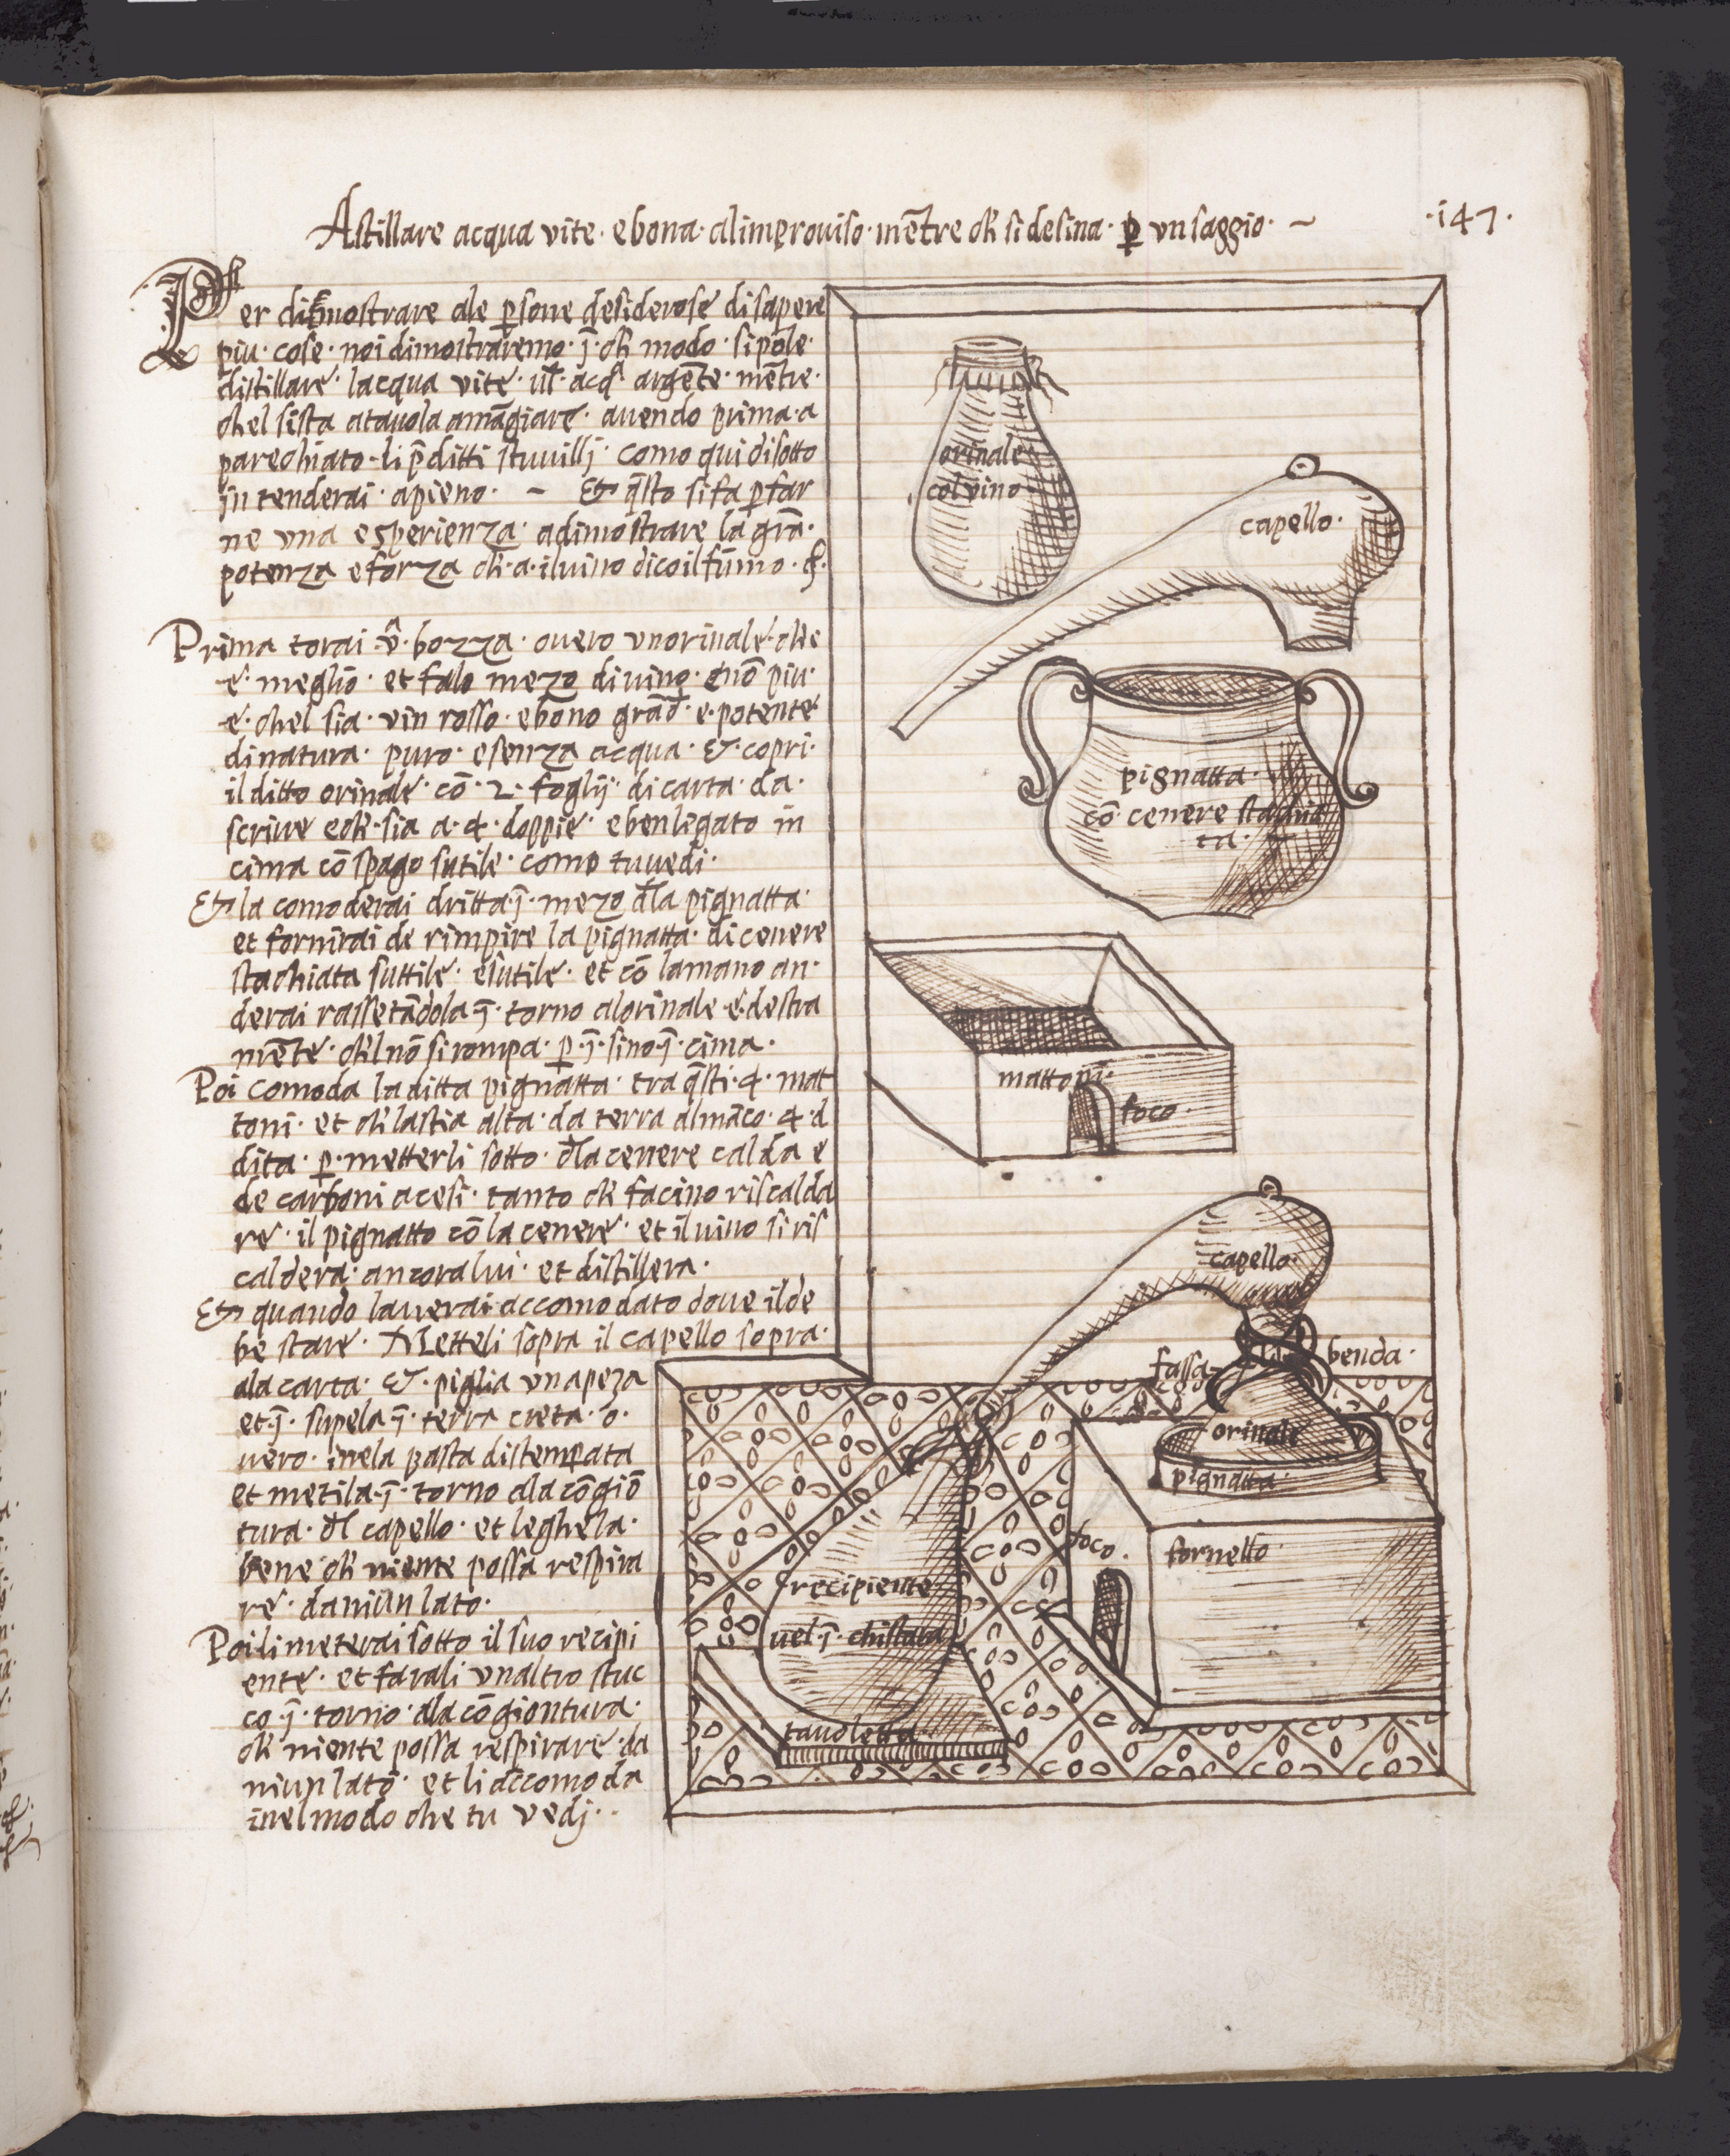 Astillare acqua vite · e bona · alimproviso · mẽtre ch si desina · ꝑ vn saggio · ~
· 147 ·
Per dimostrare ale ꝑsone desiderose di sapere
piu · cose · noi dimostraremo · ĩ · ch modo · si pole ·
distillare · lacqua vite · ul · acq̃ · argẽte · mẽtre ·
chel si sta a tauola a mãgiare · auendo prima · a
parechiato · li p̃ditti stuuillj · como qui di sotto
jntenderai · apieno · ~ Et q̃sto si fa ꝑ far
ne una esperienza · a dimostrare la grã ·
potenza e forza ch · a · il uino dico il fũmo ·
Prima torai · ṽ · bozza · ouero vn orinale · che
e · meglio · et falo mezo di uino · e nõ piu ·
e · chel sia · vin rosso · e bono grãd · e · potente
di natura · puro · e senza acqua · Et · copri ·
il ditto orinale · cõ · 2 · foglij · di carta · da ·
scriue e ch · sia a · 4 · doppie · e ben ligato in
cima cõ spago sutile · como tu uedi ·
Et la comoderai dritta · ĩ · mezo dla pignatta ·
et fornirai de rimpire la pignatta · di cenere
stachiata suttile · e sutile · et cõ la mano an ·
derai rassetãdola ĩ · torno al orinale · e · destra
mẽte · ch'l nõ si rompa · ꝑ · ĩ · sino · ĩ · cima ·
Poi comoda la ditta pignatta · tra q̃sti · 4 · mat
toni · et ch la stia alta · da terra almãco · 4 · d
dita · ꝑ · metterli sotto · dla cenere calda e
de carboni acesi · tanto ch facino riscalda
re · il pignatto cõ la cenere · et il uino si ris
caldera · ancora lui · et distillera ·
Et quando lauerai accomodato doue il de
be stare · Metteli sopra il capello sopra ·
ala carta · Et · piglia vna peza
et · ĩ · supela ĩ · terra creta · o ·
uero · inela pasta distemꝑata
et metila · ĩ · torno ala cõgiõ
tura · dl capello · et leghela ·
bene ch niente possa respira
re · da niun lato ·
Poi li meterai sotto il suo recipi
ente · et farali vn altro stuc
co · ĩ · torno · ala cõgiontura ·
ch niente possa respirare · da
niun lato · et li accomoda
inel modo che tu vedj · ·
orinale
col vino
capello ·
pignatta ·
cõ · cenere stachia
ta ·
mattoni ·
foco ·
capello ·
benda ·
fassa
orinale
pignatta ·
foco ·
fornello ·
recipiente
uel · ĩ · chistara
tauoletta ·